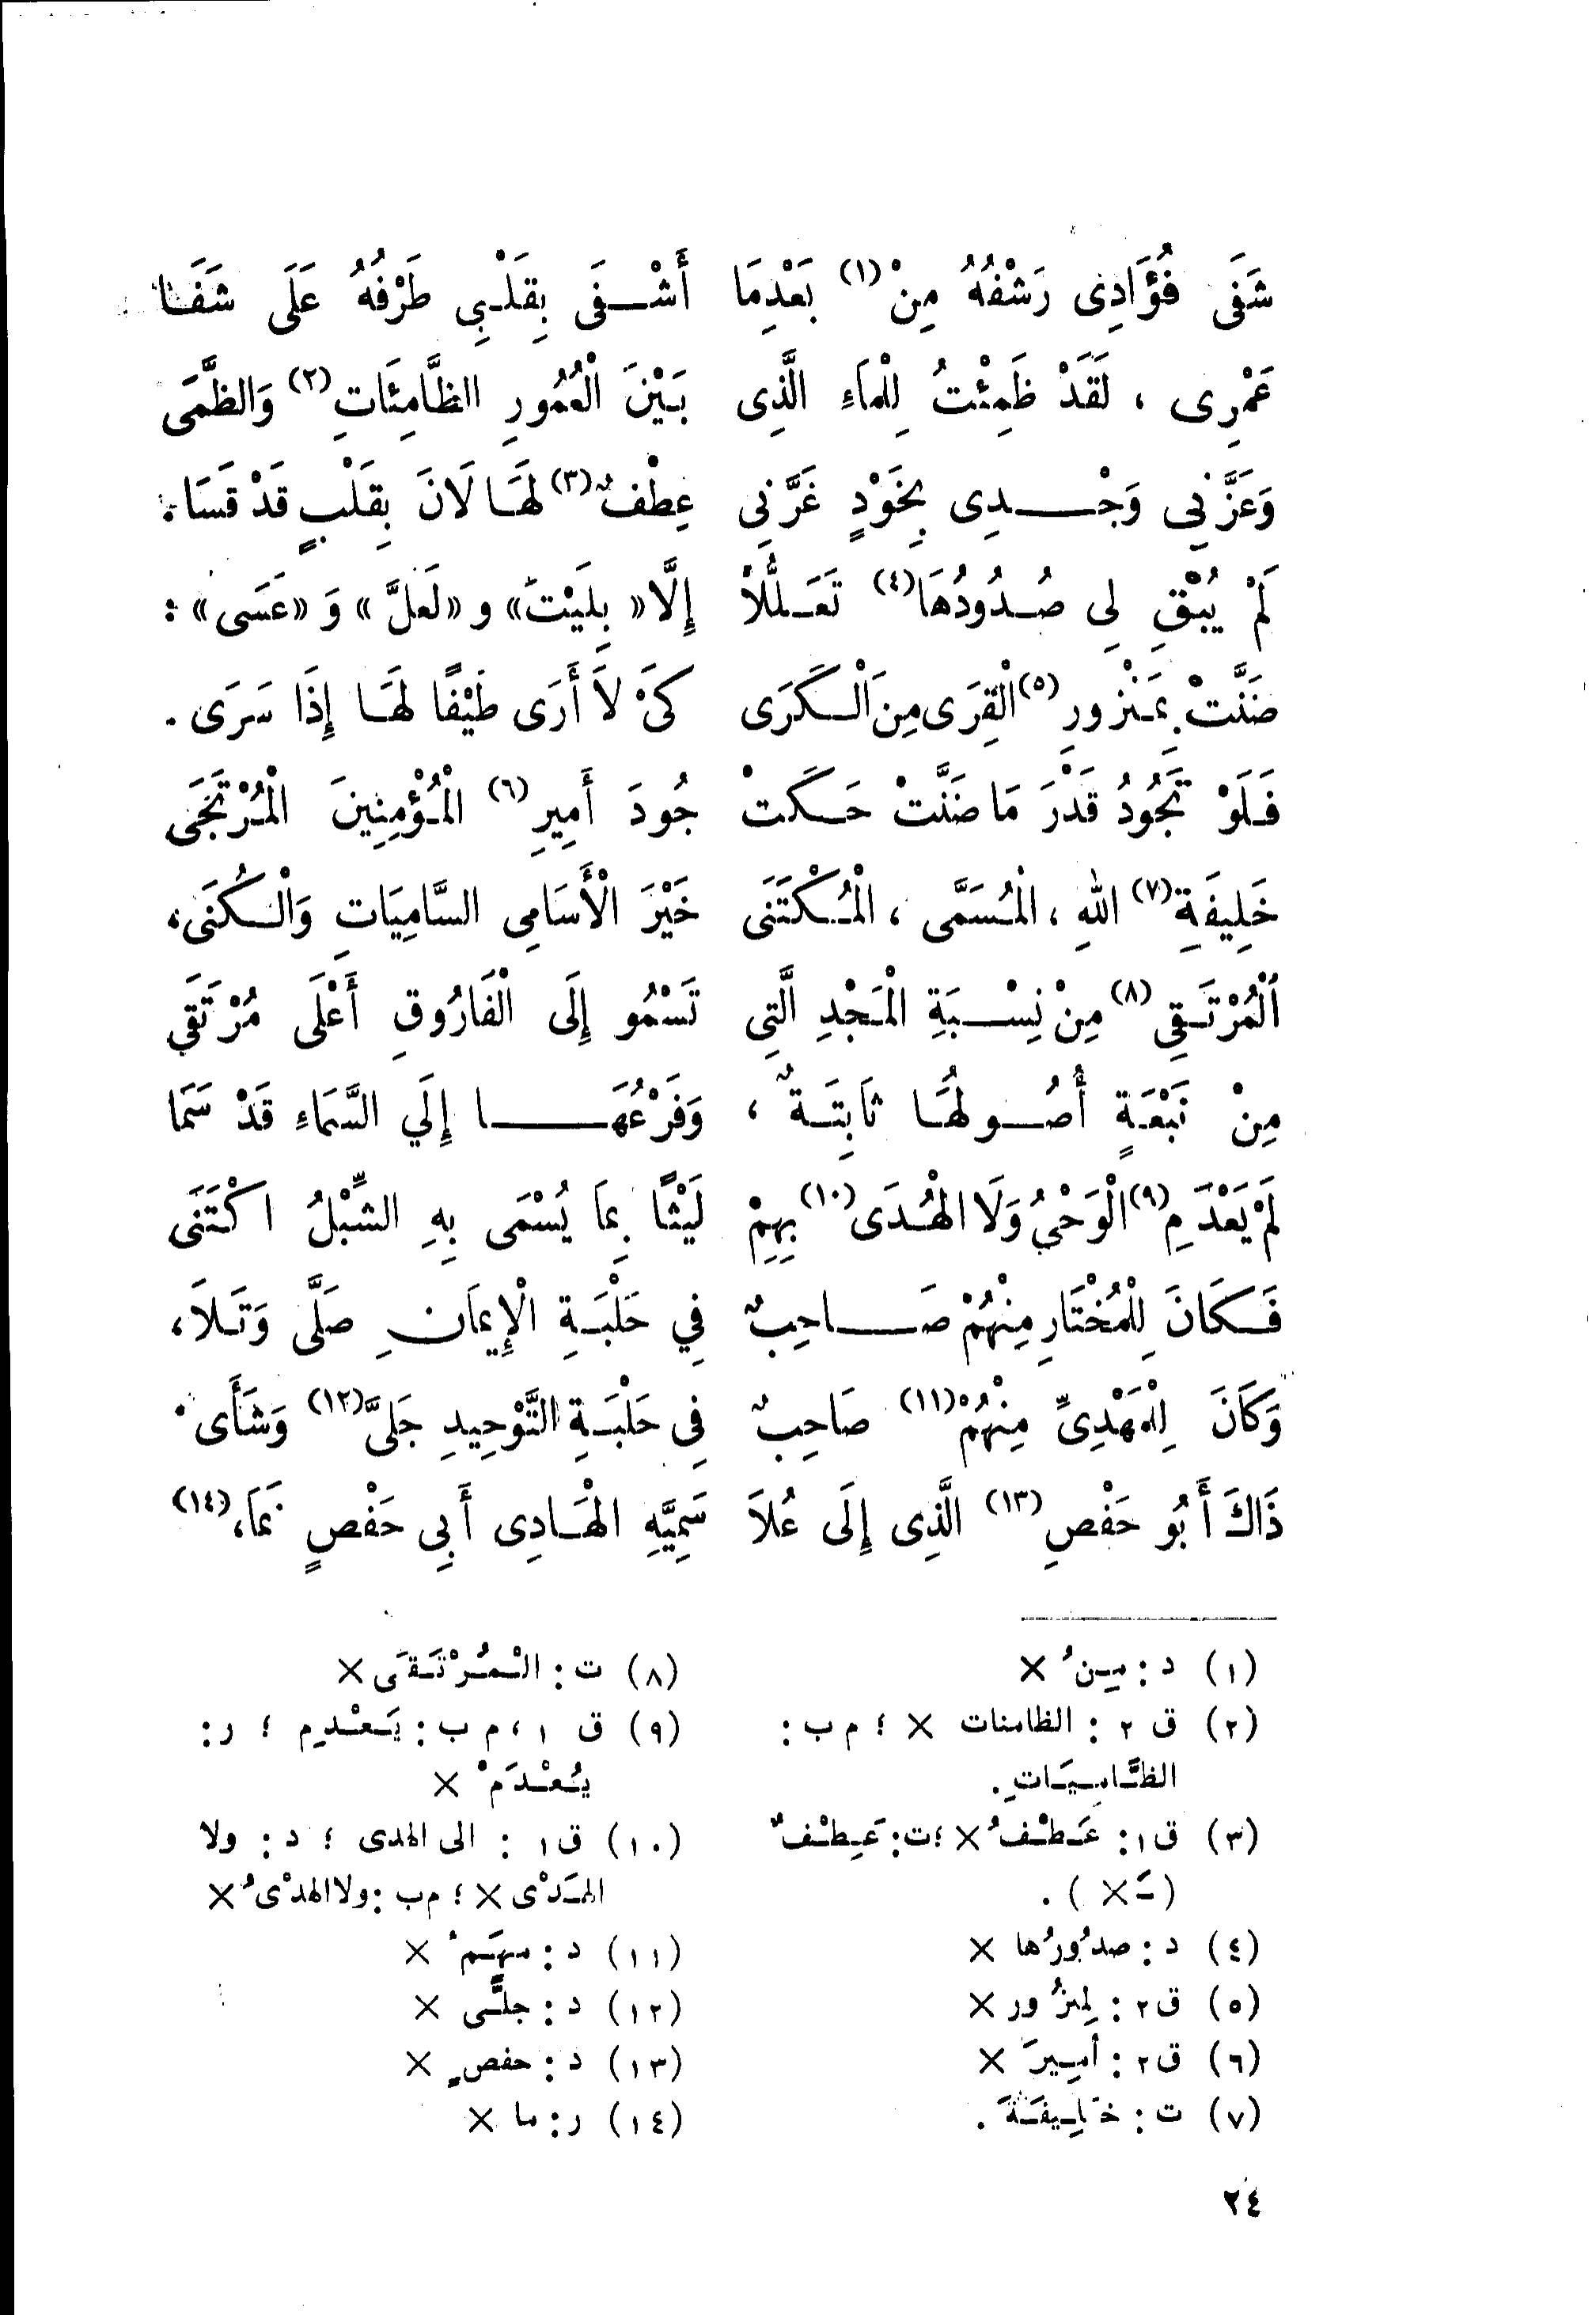 شَفَى فُؤَادِى رَشْفُهُ مِنْ (١) بَعْدِمَا أَشْفَى بِقَلْبِي طَرْفُهُ عَلَى شَفَا
عَمْرِى ، لَقَدْ ظَمِئْتُ لِلْمَاءِ الَّذِى بَيْنَ الْعُمُورِ الظَّامِئَاتِ (٢) وَالظَّمَى
وَعَزَّنِي وَجْدِى بِخَوْدٍ غَرَّنِي عِطْفٌ (٣) لَهَا لَانَ بِقَلْبٍ قَدْ قَسَا،
لَمْ يُبْقِ لِى صُدُودُهَا (٤) تَعَلُّلاً إِلَّا «بِلَيْتَ» و «لَعَلَّ» وَ «عَسَى» :
ضَنَّتْ بِمَنْزورِ (٥) الْقِرَى مِنَ الْكَرَى كَىْ لاَ أَرَى طَيْفًا لَهَا إِذَا سَرَى .
فَلَوْ تَجُودُ قَدْرَ مَا ضَنَّتْ حَكَتْ جُودَ أَمِيرِ (٦) الْمُؤْمِنِينَ الْمُرْتَجَى
خَلِيفَةِ (٧) اللهِ ، الْمُسَمَّى ، الْمُكْتَنَى خَيْرَ الْأَسَامِى السَّامِيَاتِ وَالْكُنَى،
اَلْمُرْتَقِى (٨) مِنْ نِسْبَةِ الْمَجْدِ الَّتِى تَسْمُو إِلَى الْفَارُوقِ أَعْلَى مُرْتَقَي
مِنْ نَبْعَةٍ أُصُولُهَا ثَابِتَةٌ ، وَفَرْعُهَا إِلَي السَّمَاءِ قَدْ سَمَا
لَمْ يَعْدَمِ (٩) الْوَحْيُ وَلَا الْهُدَى (١٠) بِهِمْ لَيْثًا بِمَا يُسْمَى بِهِ الشِّبْلُ اكْتَنَى
فَكَانَ لِلْمُخْتَارِ مِنْهُمْ صَاحِبٌ فِي حَلْبَةِ الْإِيمَانِ صَلَّى وَتَلاَ،
وَكَانَ لِلْمَهْدِىِّ مِنْهُمْ (١١) صَاحِبٌ فِى حَلْبَةِ التَّوْحِيدِ جَلىَّ (١٢) وَشَأَى .
ذَاكَ أَبُو حَفْصِ (١٣) الَّذِى إِلَى عُلاَ سَمِيِّهِ الْهَادِى أَبِى حَفْصٍ نَمَا، (١٤)
(١) د : مِنُ ×
(٢) ق ٢ : الظامنات × ؛ م ب :
الظَّامِيَاتِ .
(٣) ق ١ : عَطْفُ × ؛ ت : عَِطْفٌ
( ـَ × ) .
(٤) د : صدُورُها ×
(٥) ق ٢ : لمنزُور ×
(٦) ق ٢ : أميرَ ×
(٧) ت : خَلِيفَةَ .
(٨) ت : الْمُرْتَقَى ×
(٩) ق ١ ، م ب : يَعْدِم ؛ ر :
يُعْدَمْ ×
(١٠) ق ١ : الى الهدى ؛ د : ولا
الهَدْى × ؛ م ب : ولا الهدْىُ ×
(١١) د : مِنهَمُ ×
(١٢) د : جلًّى ×
(١٣) د : حفصٍ ×
(١٤) ر : ما ×
٢٤